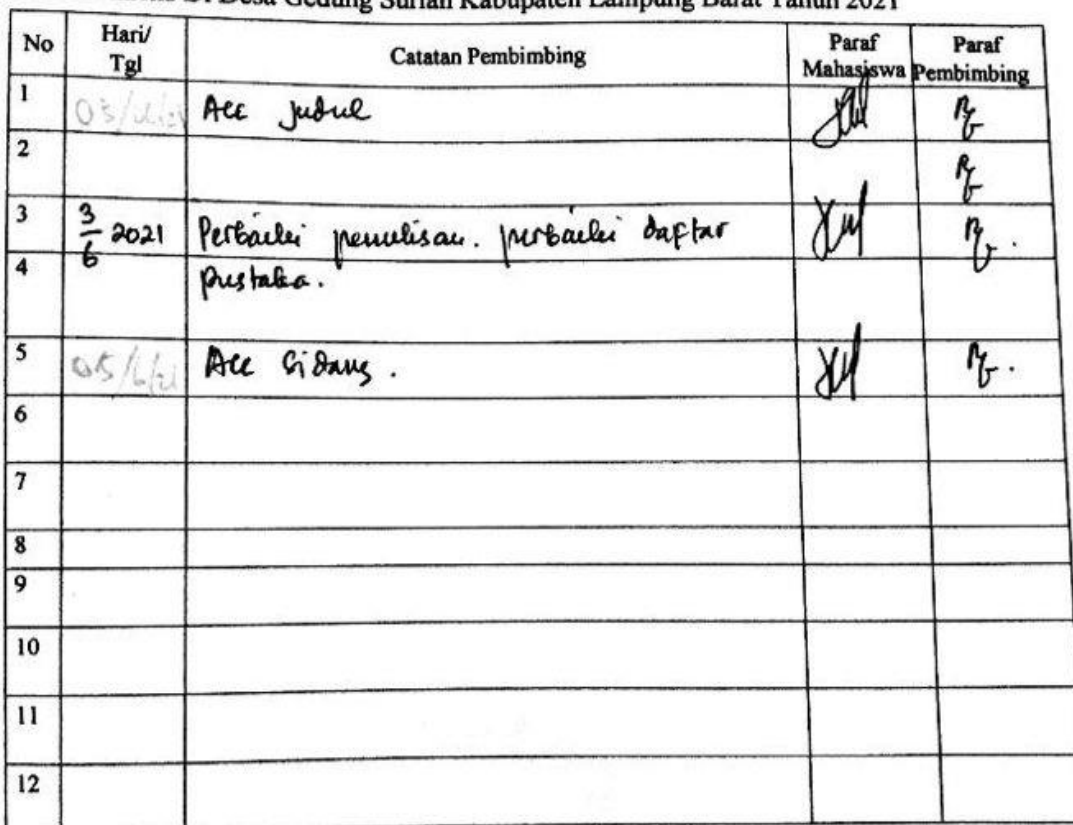 Di Desa Gedung Surian Kabupaten Lampung Barat Tahun 2021
No Hari/ Tgl Catatan Pembimbing Paraf Mahasiswa Paraf Pembimbing
1 Acc judul
2
3 3/6 2021 Perbaiki penulisan. perbaiki daftar
4 pustaka.
5 Acc Sidang.
6
7
8
9
10
11
12